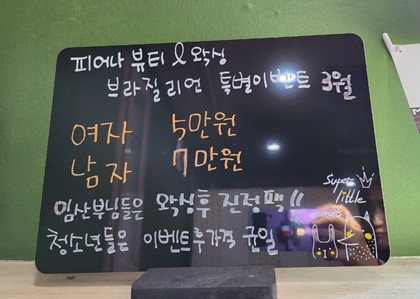 피어나 뷰티 & 왁싱
브라질리언 특별이벤트 3월
여자 5만원
남자 7만원
임산부님들은 왁싱후 진정팩!!
청소년들은 이벤트후가격 균일
Super
little